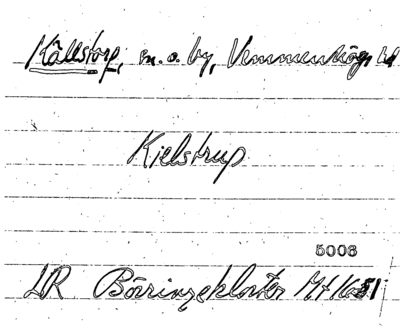 Källstorp, sn. o. by, Vemmenhögs hd
Kielstrup
5006
LR Börringekloster Mf 1651